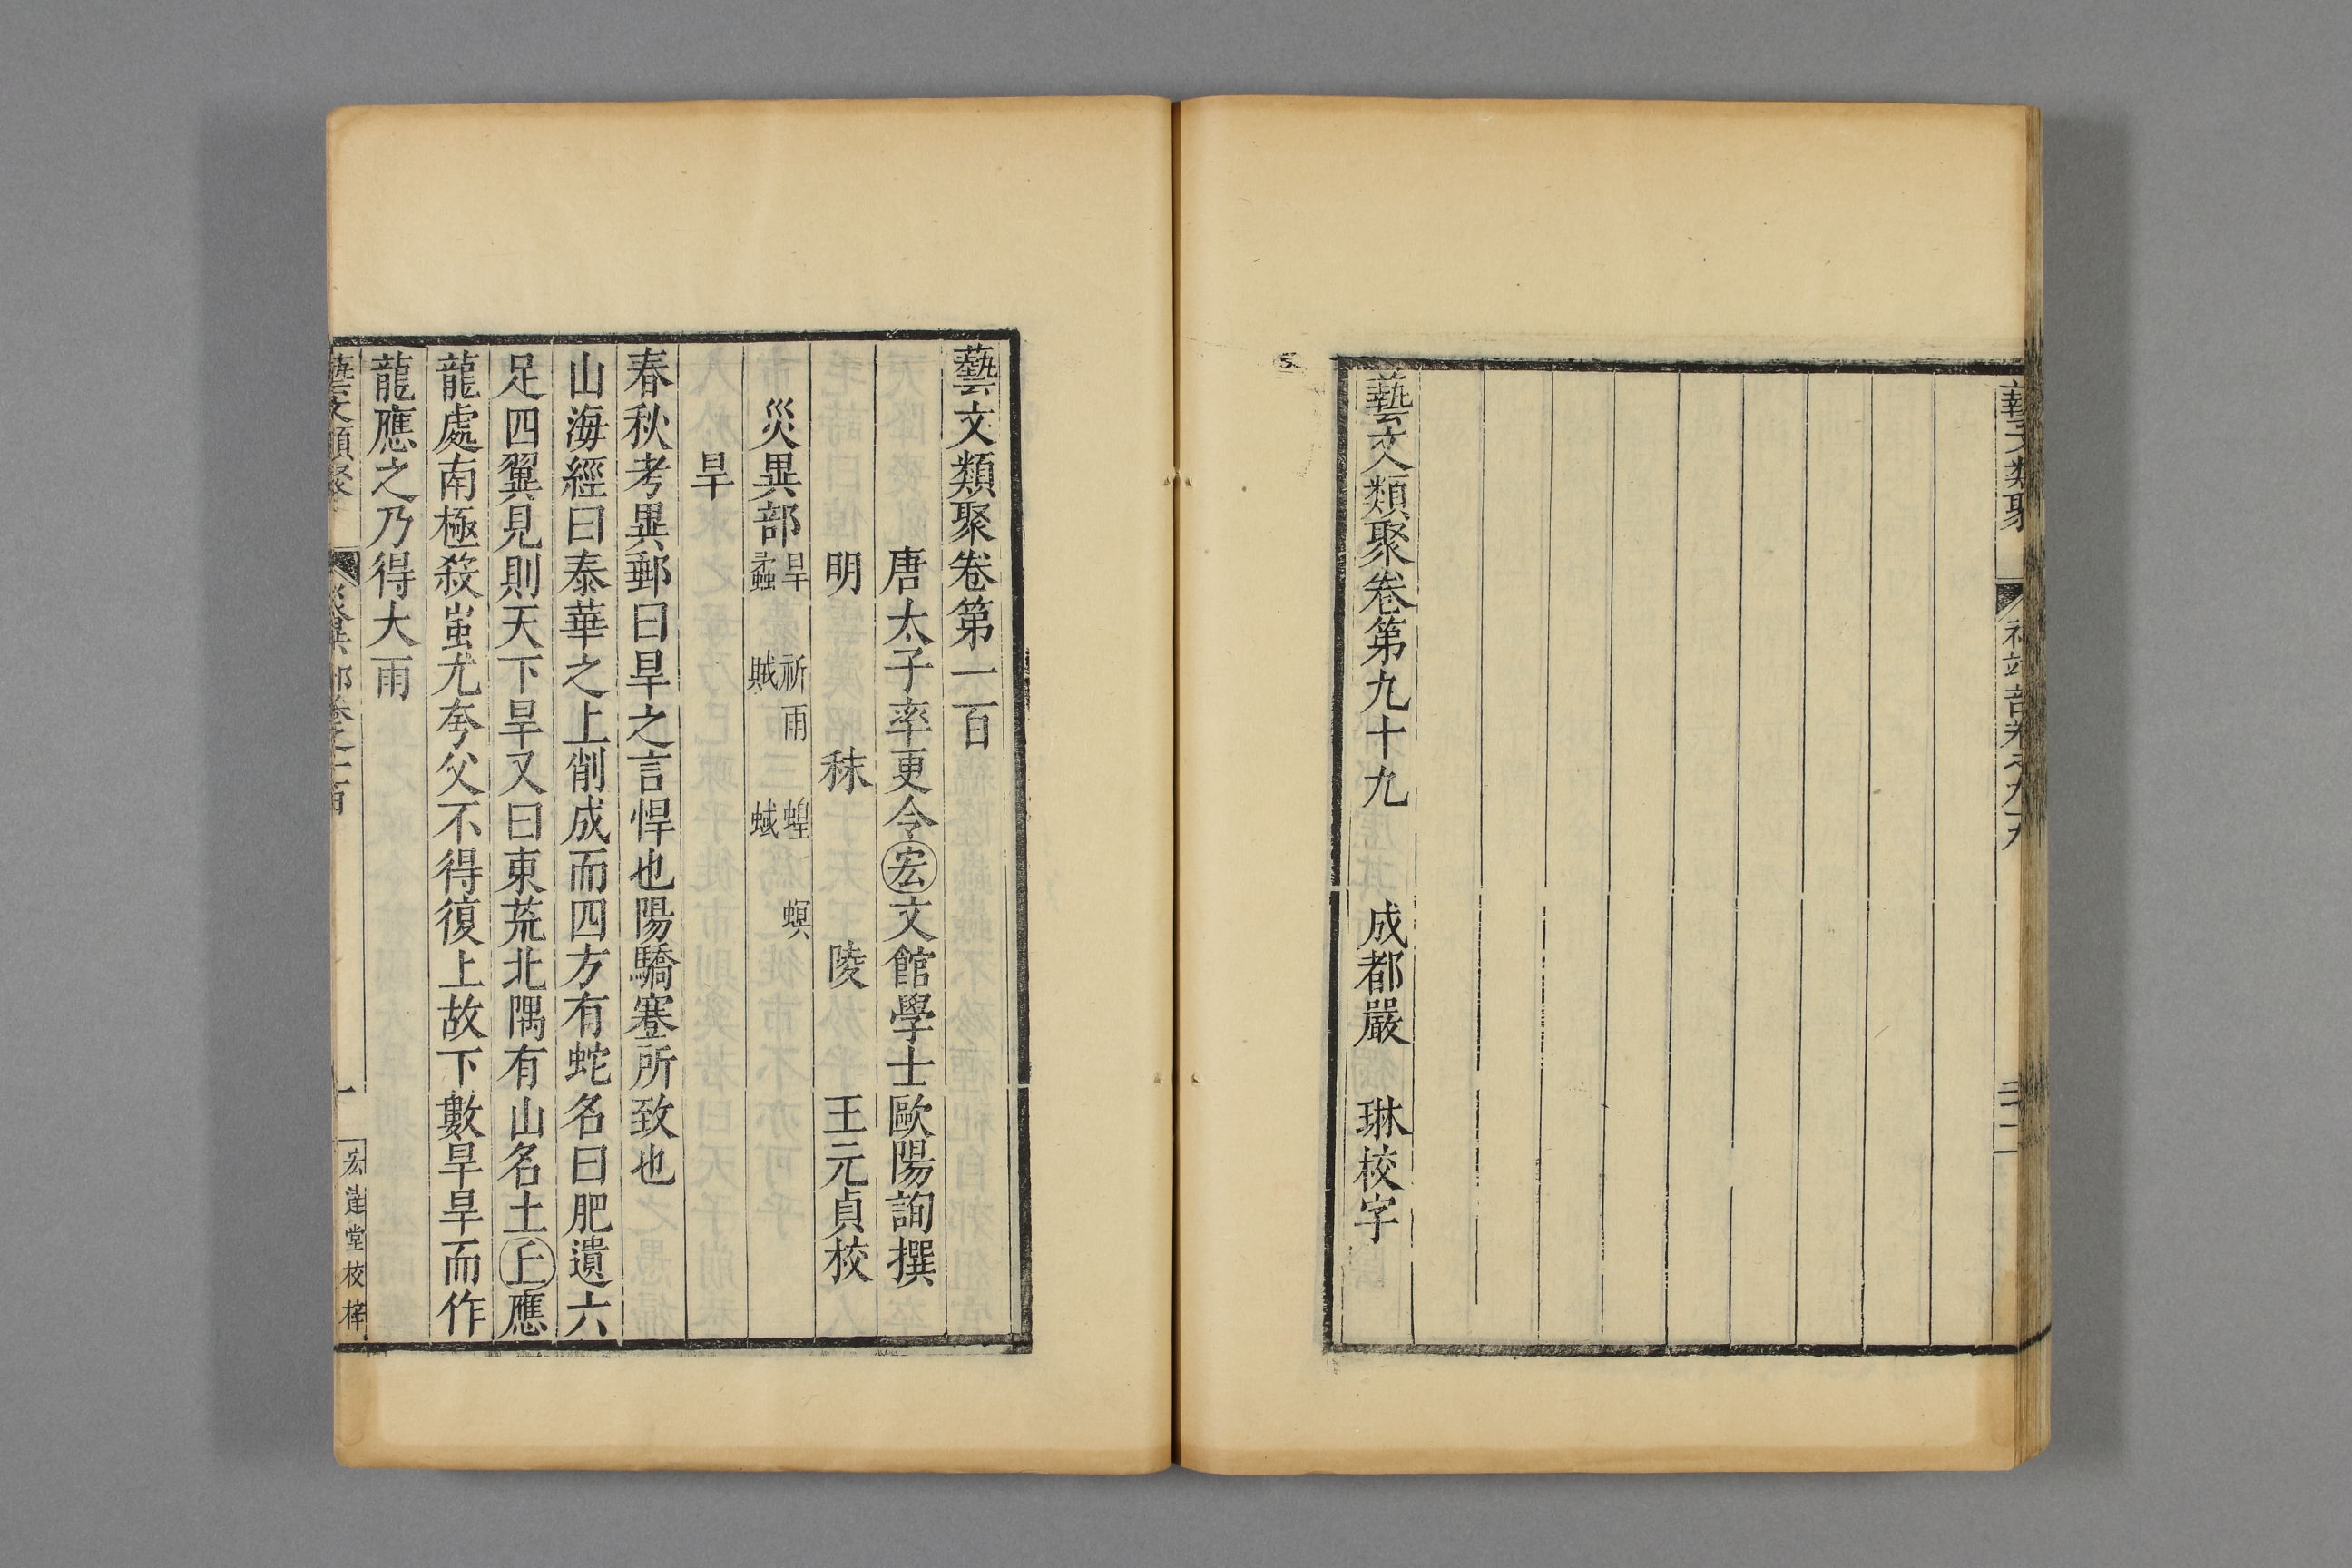 藝文類聚
藝文類聚卷第九十九　成都嚴　琳校字
藝文類聚卷第一百
唐太子率更令宏文館學士歐陽詢撰
明　秣　陵　王元貞校
災異部 旱　祈雨　蝗　螟
蟊　賊　蜮
旱
春秋考異郵曰旱之言悍也陽驕蹇所致也
山海經曰泰華之上削成而四方有蛇名曰肥遺六
足四翼見則天下旱又曰東荒北隅有山名土上應
龍處南極殺蚩尤夸父不得復上故下數旱旱而作
龍應之乃得大雨
藝文類聚　災異部卷之一百　一　宏達堂校梓